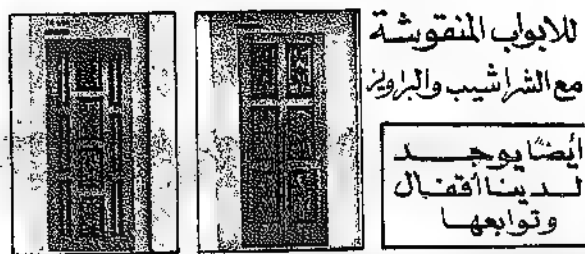 للابواب المنقوشة
مع الشراشيب والبراويز
أيضًا يوجد
لدينا أقفال
وتوابعها